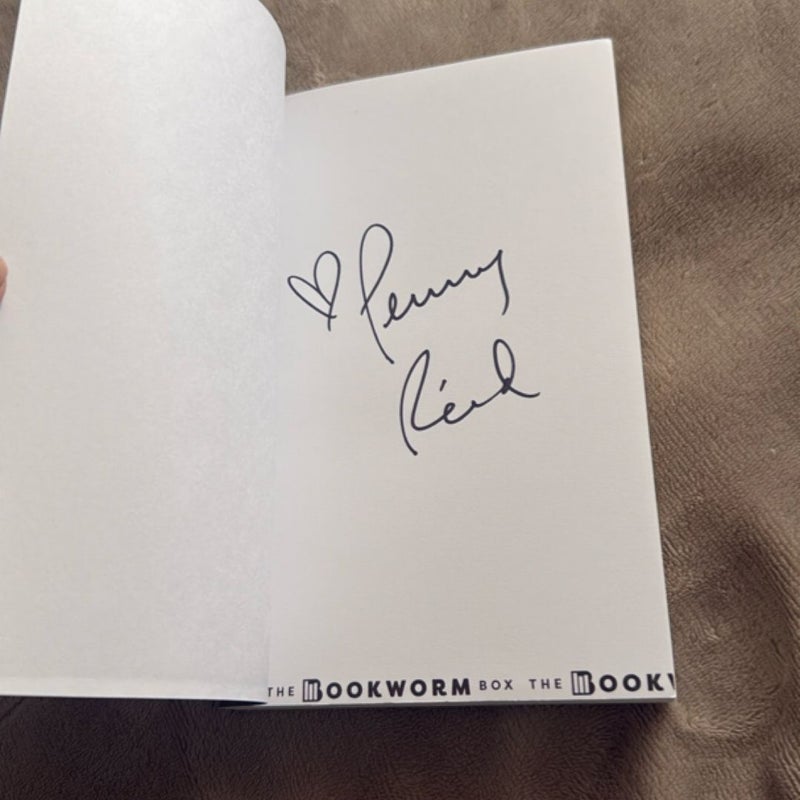 ♡ Penny
Reid
THE BOOKWORM BOX THE BOOK